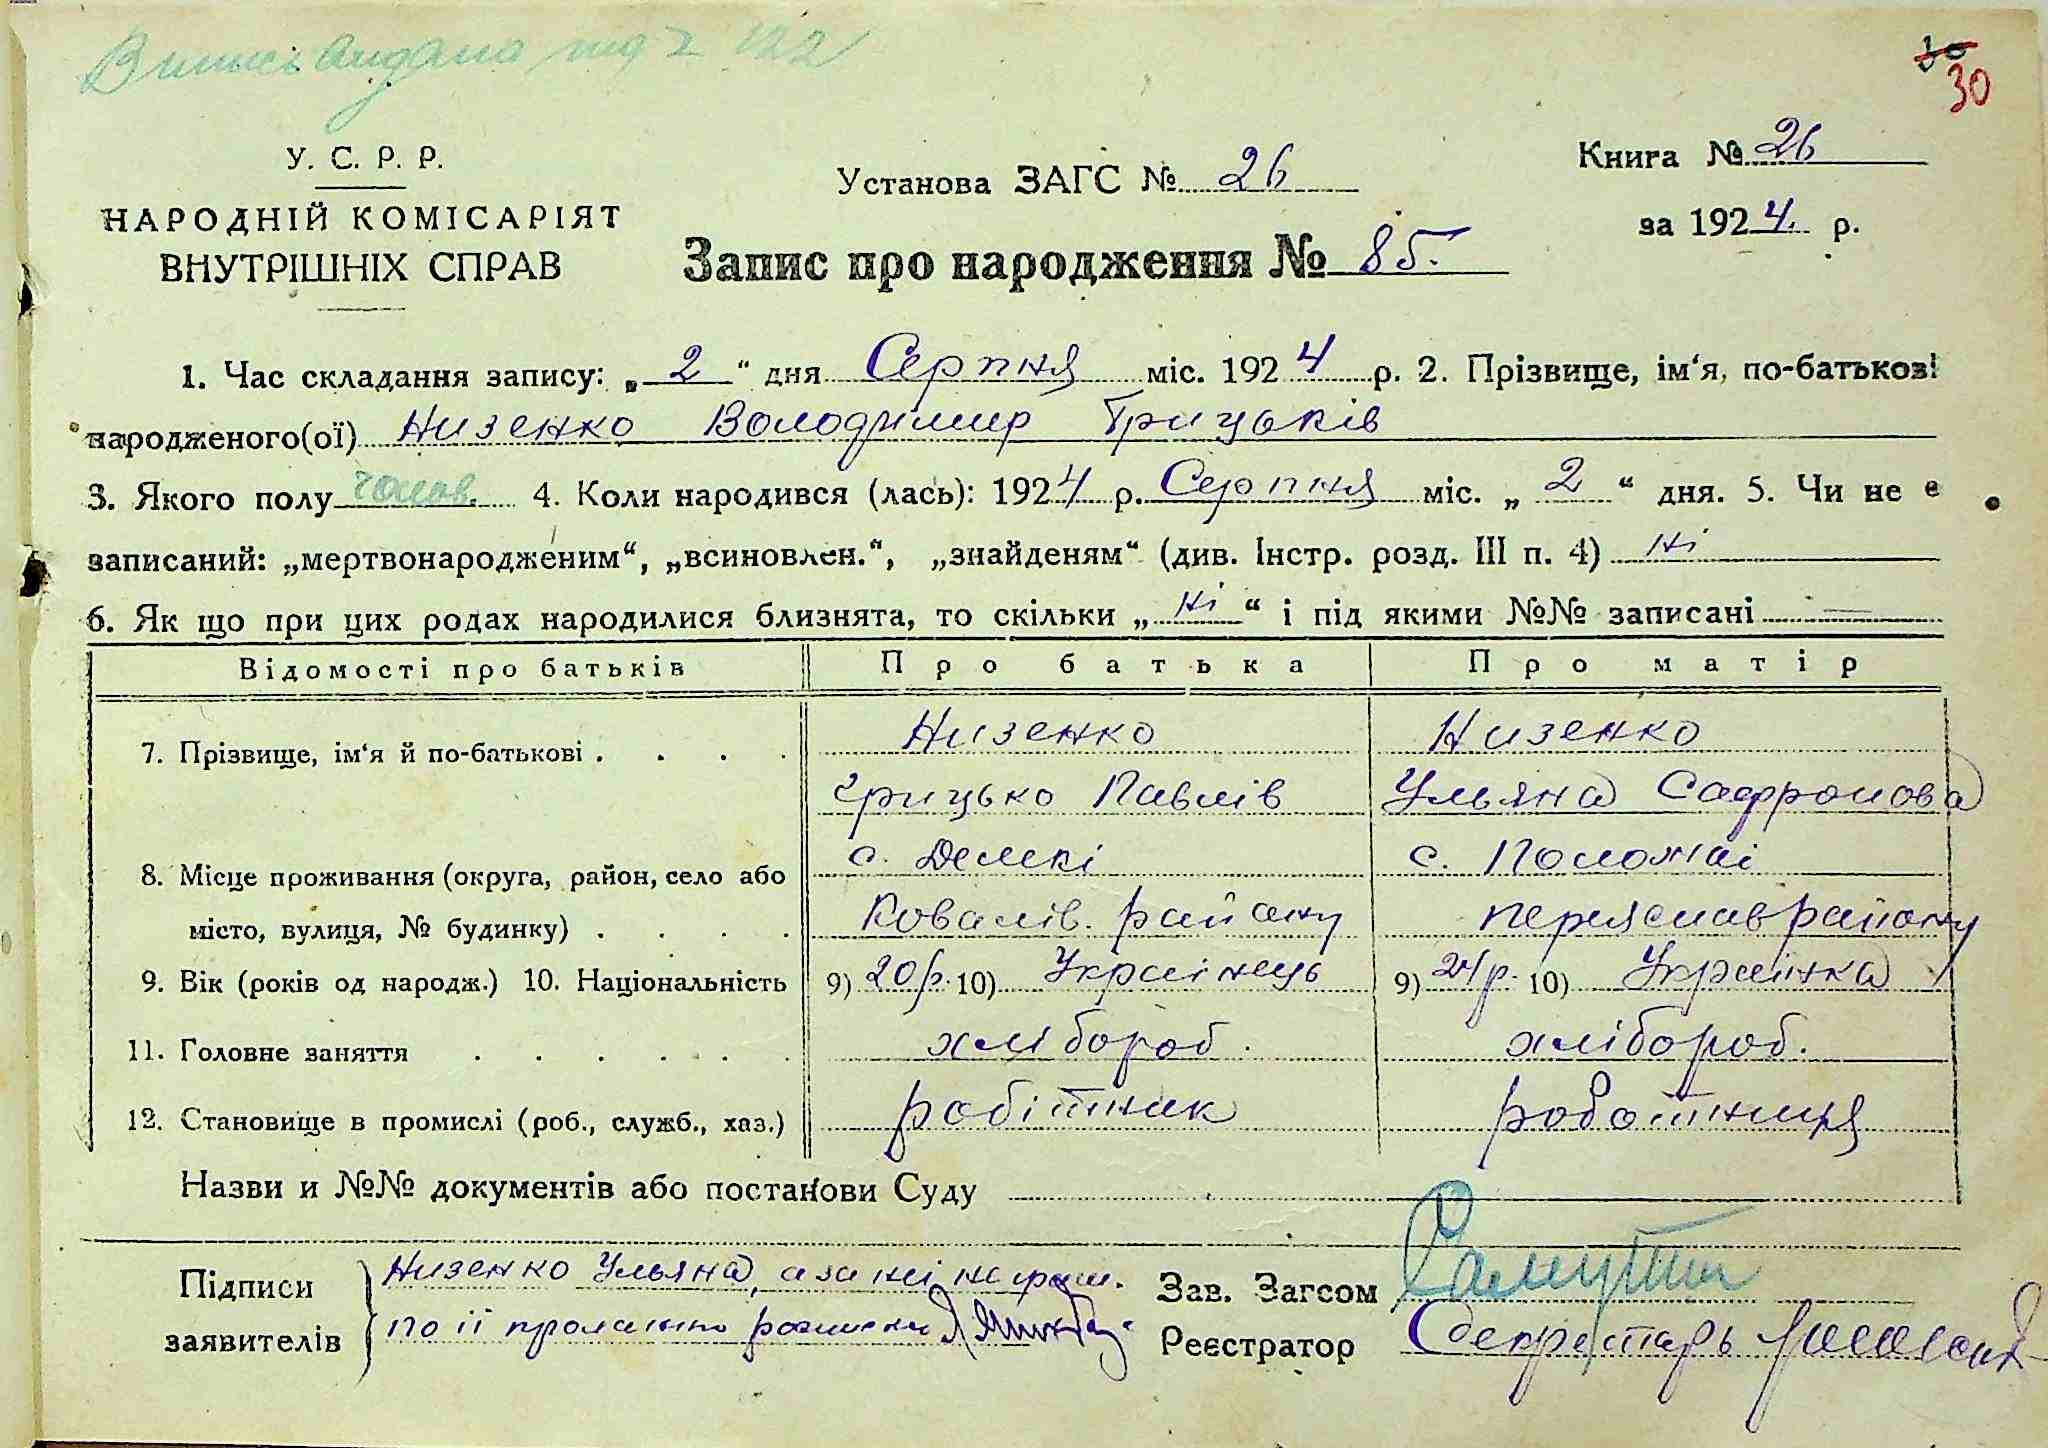 30
30
У. С. Р. Р.
НАРОДНІЙ КОМІСАРІЯТ
ВНУТРІШНІХ СПРАВ
Установа ЗАГС № 26
Книга № 26
за 1924 р.
Запис про народження № 85.
1. Час складання запису: „ 2 “ дня Серпня міс. 1924 р. 2. Прізвище, ім‘я, по-батькові
народженого(ої) Низенко Володимир Грицьків
3. Якого полу чолов. 4. Коли народився (лась): 1924 р. Серпня міс. „ 2 “ дня. 5. Чи не є
записаний: „мертвонародженим“, „всиновлен.“, „знайденям“ (див. Інстр. розд. III п. 4) ні
6. Як що при цих родах народилися близнята, то скільки „ ні “ і під якими №№ записані —
Відомості про батьків Про батька Про матір
7. Прізвище, ім‘я й по-батькові . . . . Низенко Низенко
Грицько Павлів Ульяна Сафронова
8. Місце проживання (округа, район, село або с. Демкі с. Положаі
місто, вулиця, № будинку) . . . . Ковалів. району переяслав району
9. Вік (років од народж.) 10. Національність 9) 20 р. 10) Украінець 9) 24 р. 10) Украінка
11. Головне заняття . . . . . . хлібороб. хлібороб.
12. Становище в промислі (роб., служб., хаз.) робітник роботниця
Назви и №№ документів або постанови Суду
Підписи Низенко Ульяна, а за
заявителів по її
Зав. Загсом
Реєстратор Секретарь